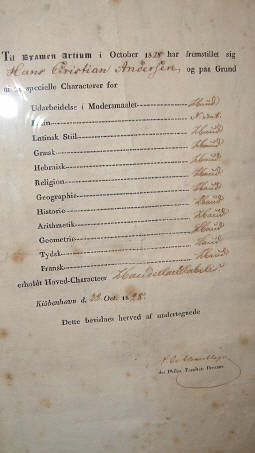 Til Examen Artium i October 1828 har fremstillet sig
Hans Christian Andersen, og paa Grund
af de specielle Characterer for
Udarbeidelse i Modersmaalet Haud
Latin N
Latinsk Stiil Haud
Græsk Haud
Hebraisk Haud
Religion Haud
Geographie Haud
Historie Haud
Arithmetik Haud
Geometrie Haud
Tydsk Haud
Fransk Haud
erholdt Hoved-Characteer Haudillaudabilis
Kiöbenhavn d. 22 Oct. 1828.
Dette bevidnes herved af undertegnede